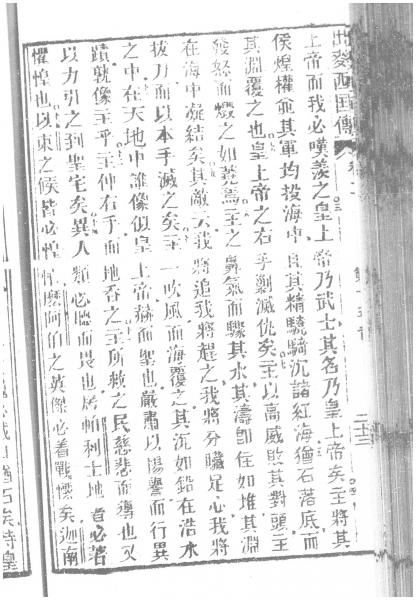 出麥西国傳
上帝而我必嘆羨之皇上帝乃武士其名乃皇上帝矣主將其
侯煌權兪其軍均投海中且其精驍騎沉諸紅海猶石落底而
其淵覆之也皇上帝之右手剿滅仇矣主以高威敗其對頭主
發怒而燬之如蒭焉主之鼻氣而驟其水其濤卽住如堆其淵
在海中凝結矣其敵云我將追我將趕之我將分贓足心我將
拔刀而以本手滅之矣主一吹風而海覆之其沉如鉛在浩水
之中在天地中誰像似皇上帝赫而聖也嚴肅以揚譽而行異
蹟孰像主乎主伸右手而地吞之主所救之民慈悲而導也又
以力引之到聖宅矣異人類必聽而畏也居帕利士地者必著
懼惶也以東之候皆必惶 摩阿伯之英傑必着戰慄矣迦南
石矣待皇